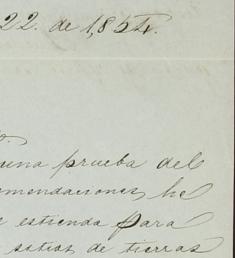 22. de 1,854.
una prueba del
omendaciones, he
e estienda para
sitios de tierras